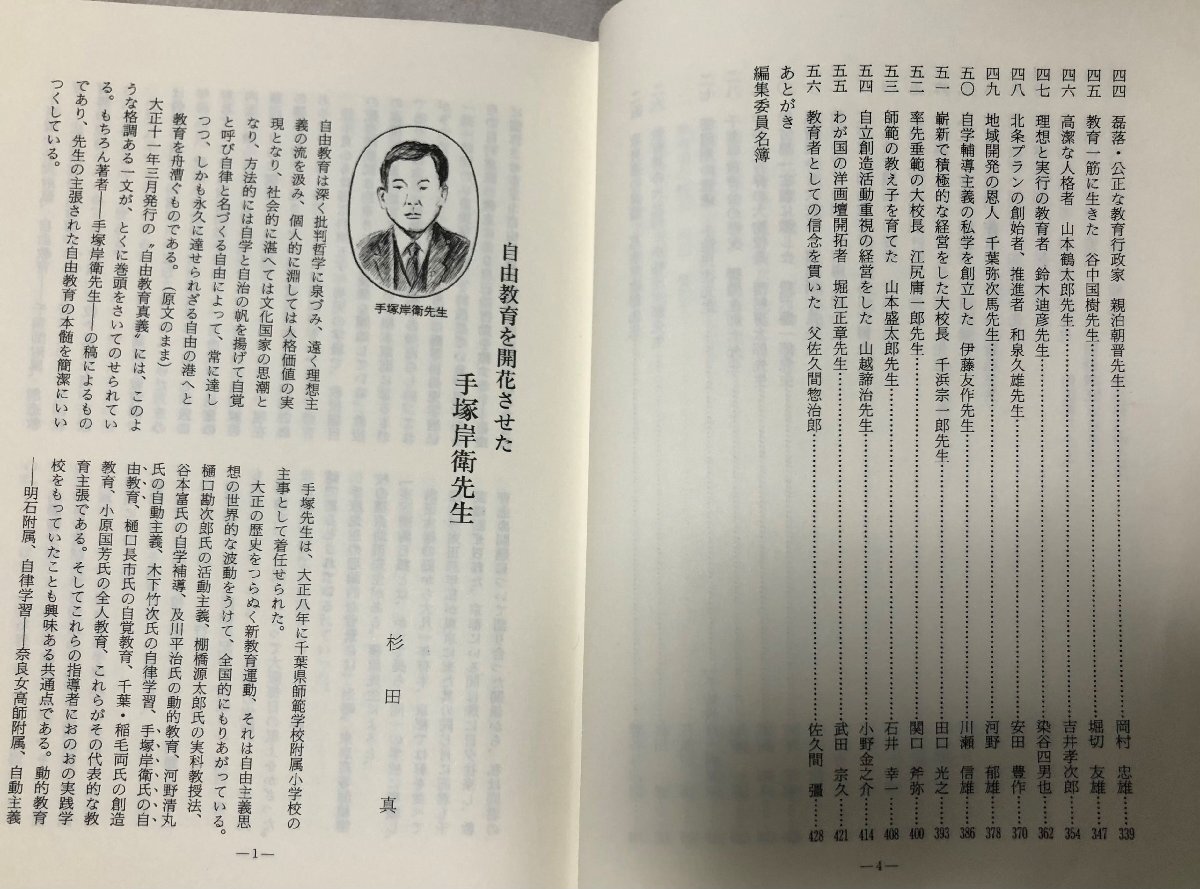 四四　磊落・公正な教育行政家　親泊朝晋先生……岡村　忠雄　339
四五　教育一筋に生きた　谷中国樹先生……堀切　友雄　347
四六　高潔な人格者　山本鶴太郎先生……吉井孝次郎　354
四七　理想と実行の教育者　鈴木迪彦先生……染谷四男也　362
四八　北条プランの創始者、推進者　和泉久雄先生……安田　豊作　370
四九　地域開発の恩人　千葉弥次馬先生……河野　郁雄　378
五〇　自学輔導主義の私学を創立した　伊藤友作先生……川瀬　信雄　386
五一　嶄新で積極的な経営をした大校長　千浜宗一郎先生……田口　光之　393
五二　率先垂範の大校長　江尻庸一郎先生……関口　斧弥　400
五三　師範の教え子を育てた　山本盛太郎先生……石井　幸一　408
五四　自立創造活動重視の経営をした　山越諦治先生……小野金之介　414
五五　わが国の洋画壇開拓者　堀江正章先生……武田　宗久　421
五六　教育者としての信念を貫いた　父佐久間惣治郎……佐久間　彊　428
あとがき
編集委員名簿
―4―
自由教育を開花させた
手塚岸衛先生
杉田　真
手塚岸衛先生
自由教育は深く批判哲学に泉づみ、遠く理想主
義の流を汲み、個人的に淵しては人格価値の実
現となり、社会的に湛へては文化国家の思潮と
なり、方法的には自学と自治の帆を揚げて自覚
と呼び自律と名づくる自由によって、常に達し
つつ、しかも永久に達せられざる自由の港へと
教育を舟漕ぐものである。（原文のまま）
大正十一年三月発行の〝自由教育真義〟には、このよ
うな格調ある一文が、とくに巻頭をさいてのせられてい
る。もちろん著者――手塚岸衛先生――の稿によるもの
であり、先生の主張された自由教育の本髄を簡潔にいい
つくしている。
手塚先生は、大正八年に千葉県師範学校附属小学校の
主事として着任せられた。
大正の歴史をつらぬく新教育運動、それは自由主義思
想の世界的な波動をうけて、全国的にもりあがっている。
樋口勘次郎氏の活動主義、棚橋源太郎氏の実科教授法、
谷本富氏の自学補導、及川平治氏の動的教育、河野清丸
氏の自動主義、木下竹次氏の自律学習、手塚岸衛氏の自
由教育、樋口長市氏の自覚教育、千葉・稲毛両氏の創造
教育、小原国芳氏の全人教育、これらがその代表的な教
育主張である。そしてこれらの指導者におのおの実践学
校をもっていたことも興味ある共通点である。動的教育
――明石附属、自律学習――奈良女高師附属、自動主義
―1―